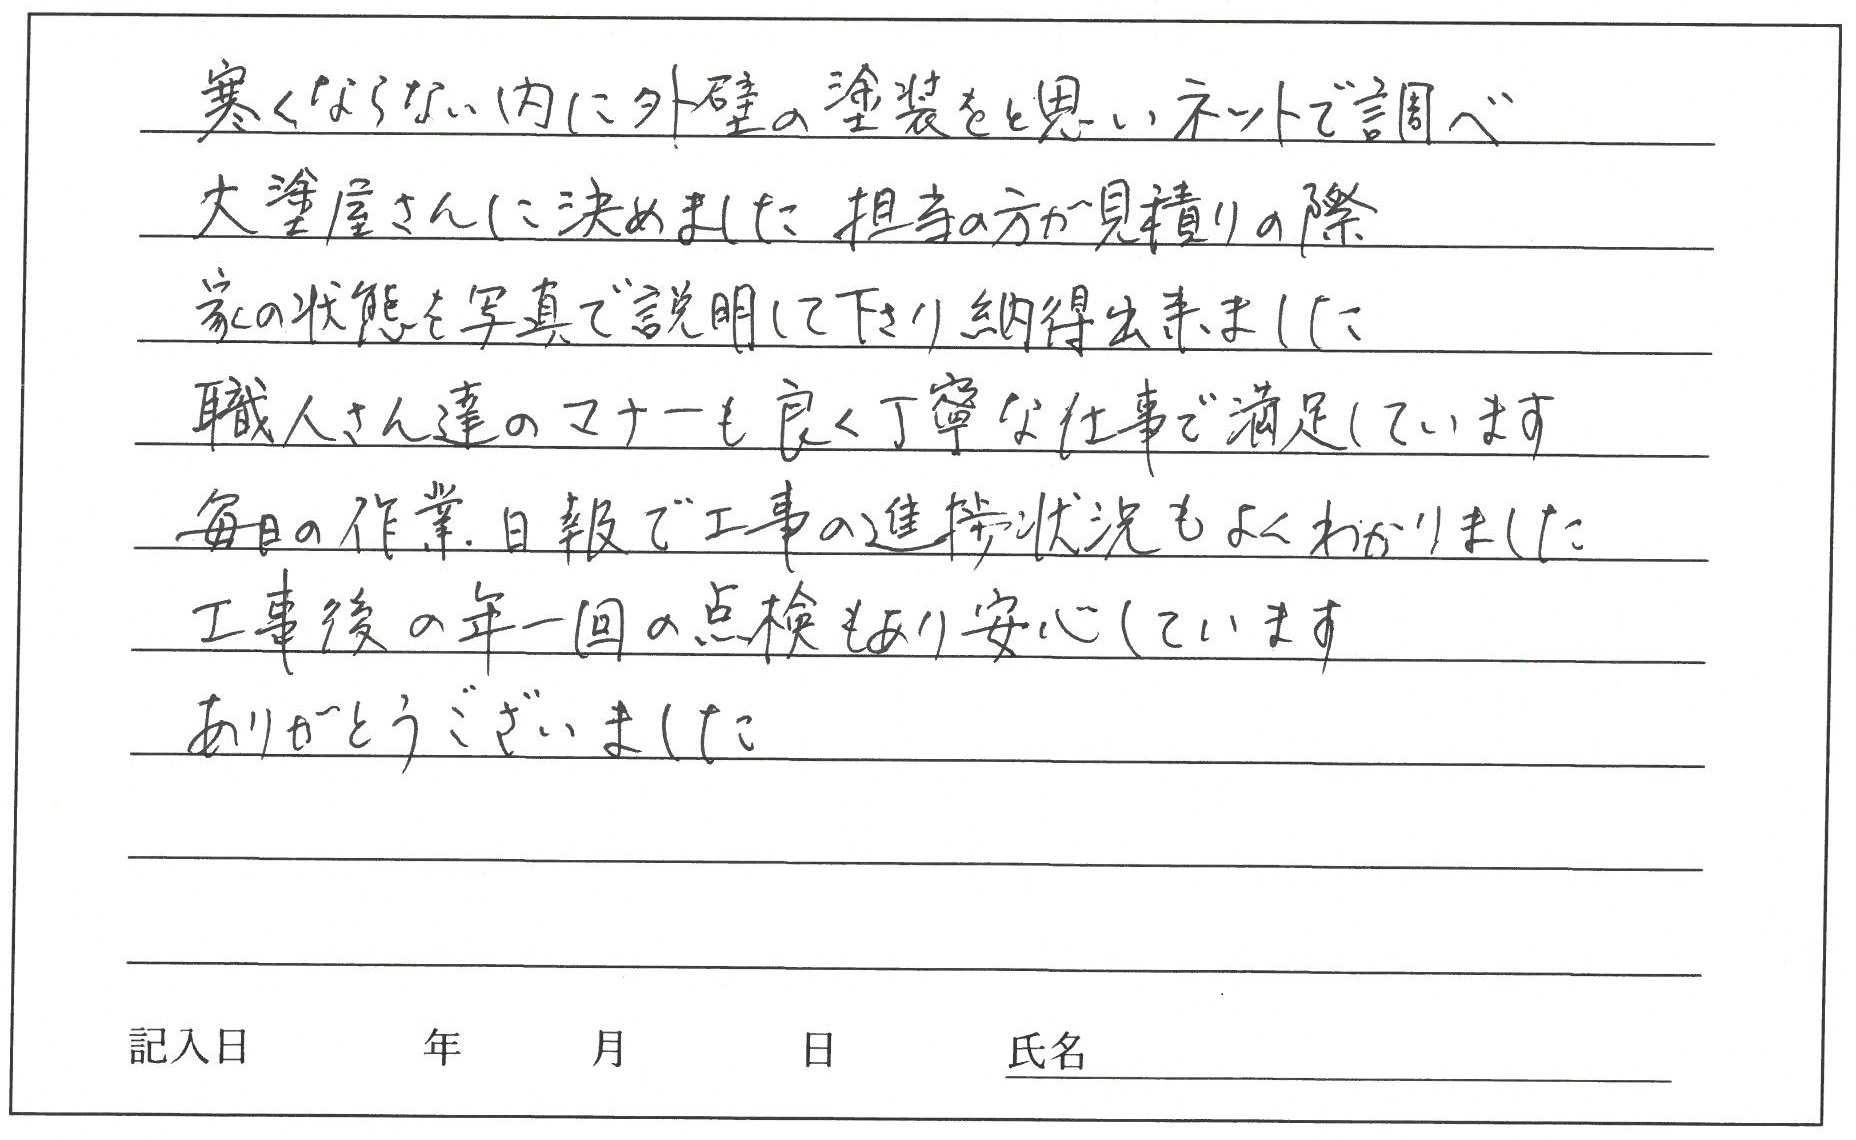 寒くならない内に外壁の塗装をと思いネットで調べ
大塗屋さんに決めました 担当の方が見積りの際
家の状態を写真で説明して下さり納得出来ました
職人さん達のマナーも良く丁寧な仕事で満足しています
毎日の作業日報で工事の進捗状況もよくわかりました
工事後の年一回の点検もあり安心しています
ありがとうございました
記入日 年 月 日 氏名